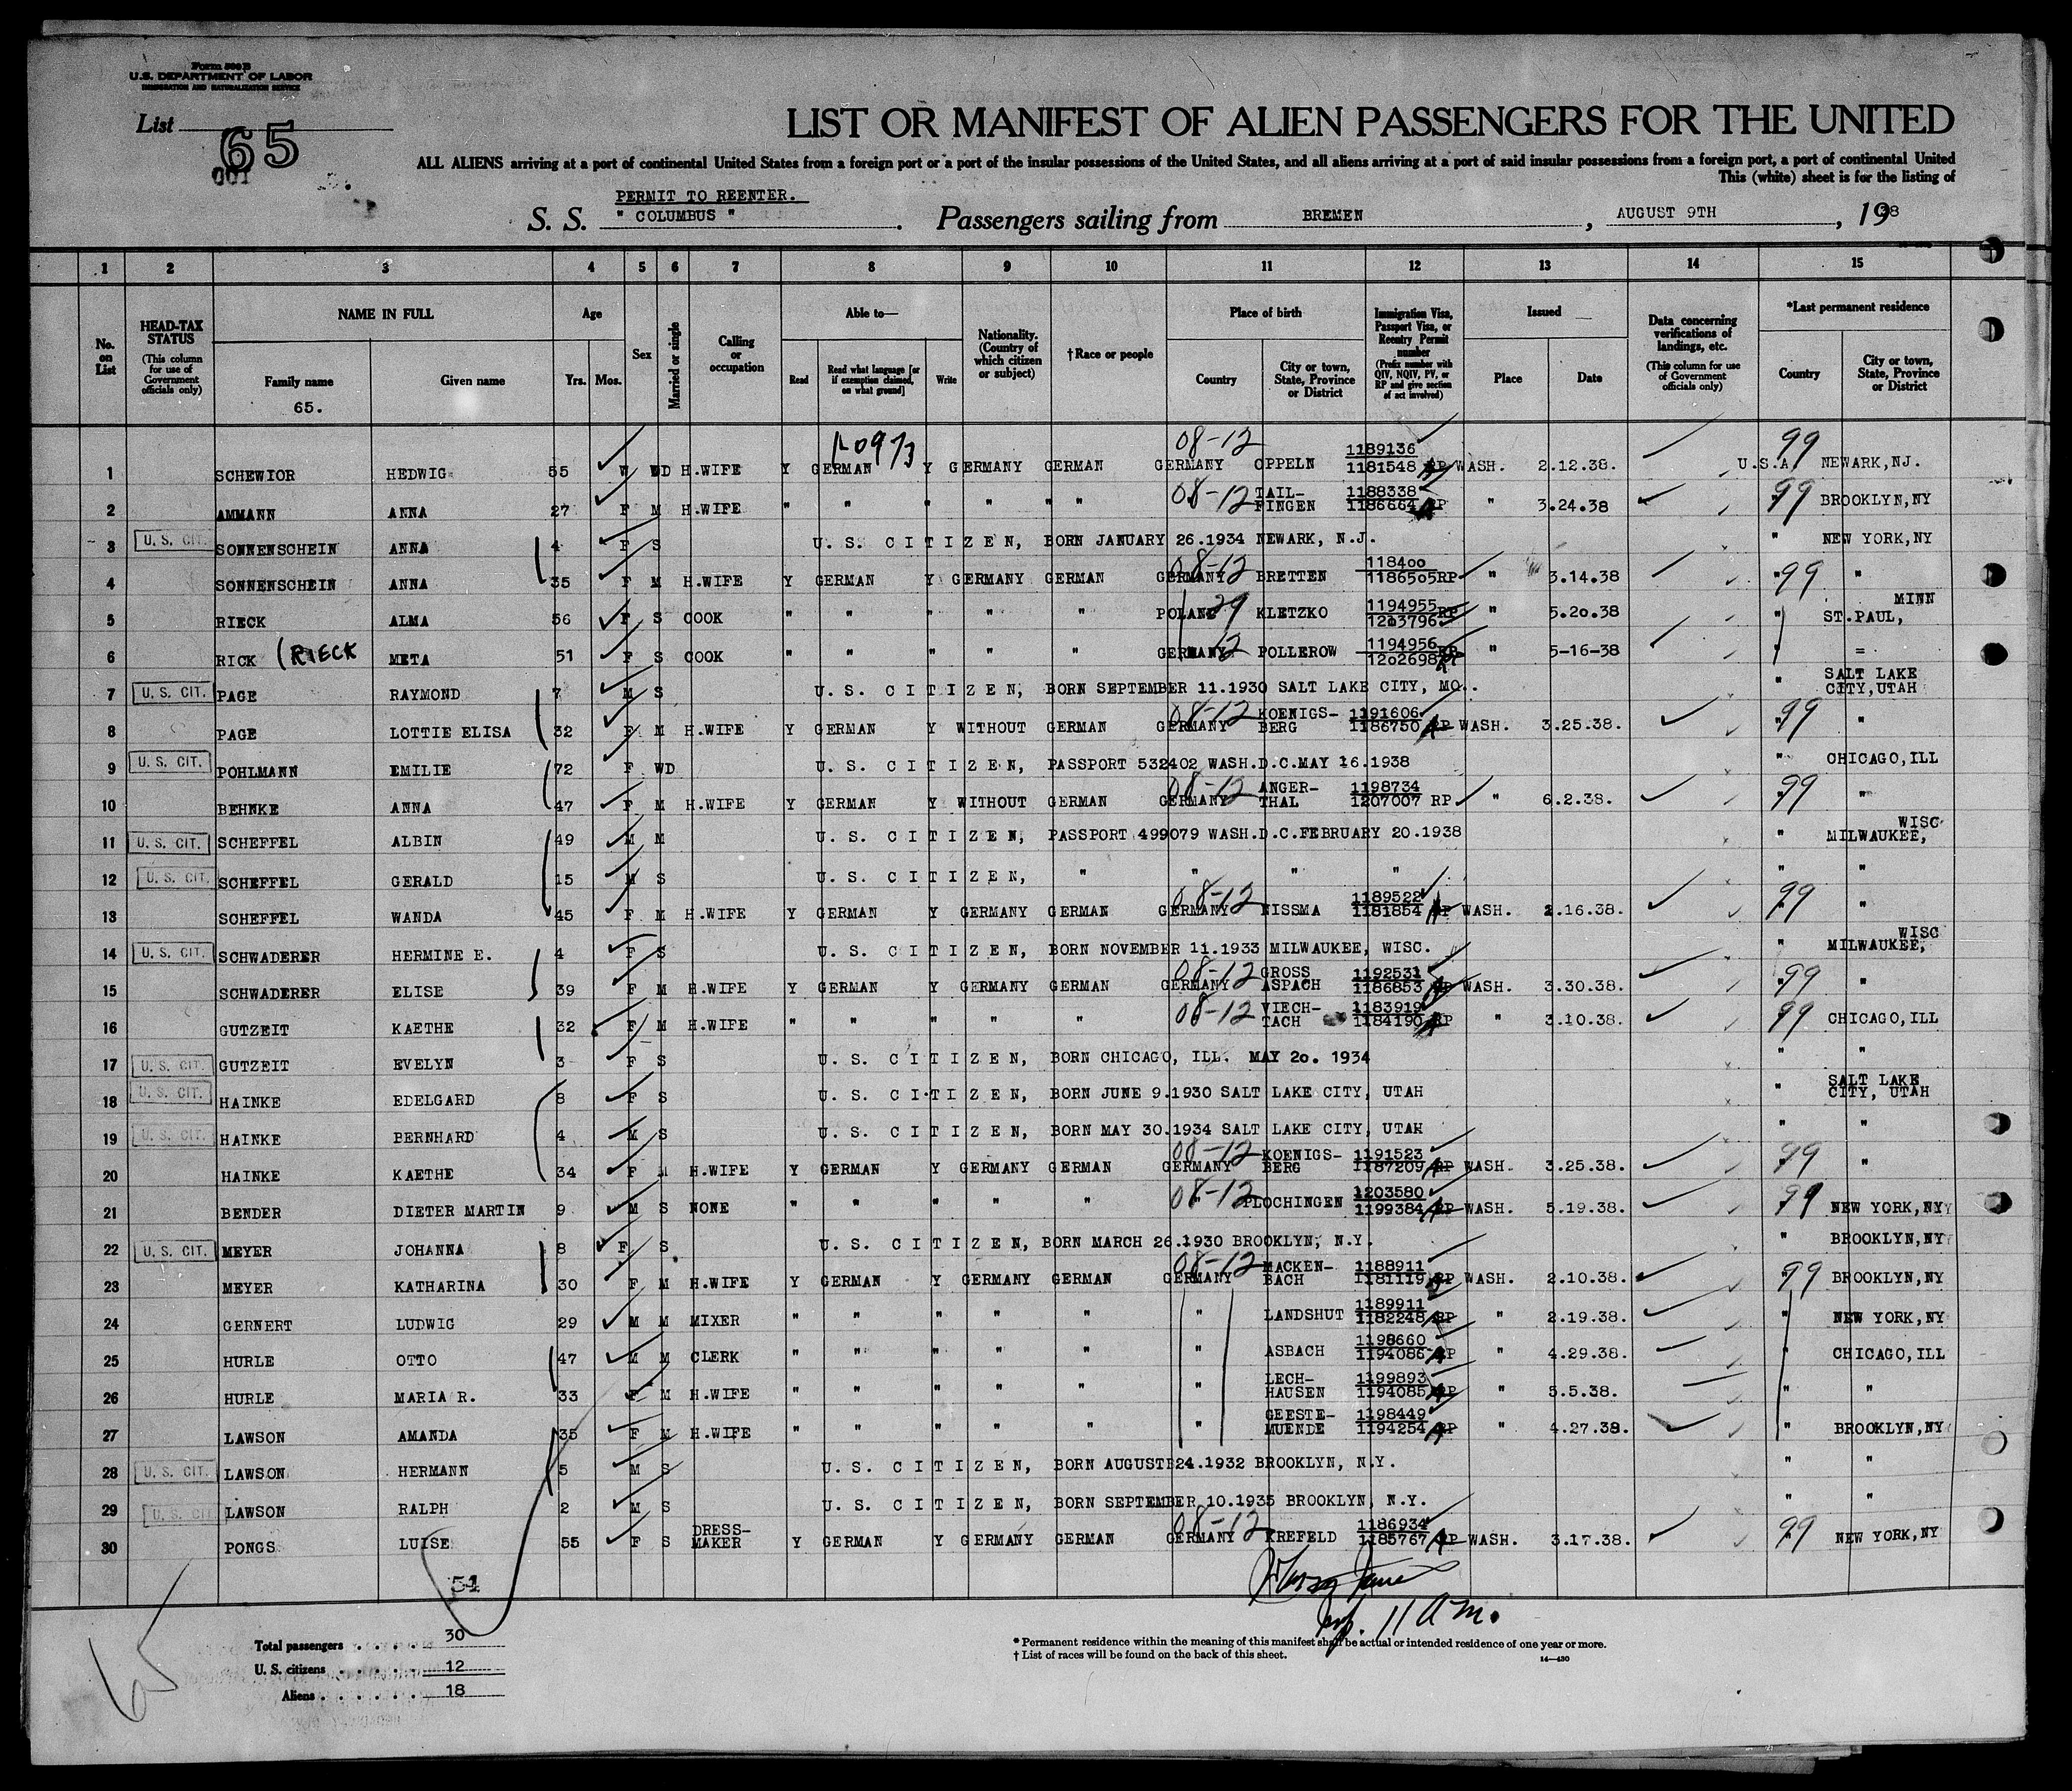 Form 500 B
U.S. DEPARTMENT OF LABOR
IMMIGRATION AND NATURALIZATION SERVICE
List 65
001
LIST OR MANIFEST OF ALIEN PASSENGERS FOR THE UNITED
ALL ALIENS arriving at a port of continental United States from a foreign port or a port of the insular possessions of the United States, and all aliens arriving at a port of said insular possessions from a foreign port, a port of continental United
This (white) sheet is for the listing of
PERMIT TO REENTER.
S. S. " COLUMBUS ". Passengers sailing from BREMEN, AUGUST 9TH, 1938
1 2 3 4 5 6 7 8 9 10 11 12 13 14 15
No. on List
HEAD-TAX STATUS (This column for use of Government officials only)
NAME IN FULL
Family name 65.
Given name
Age
Yrs. Mos.
Sex
Married or single
Calling or occupation
Able to—
Read
Read what language [or if exemption claimed, on what ground]
Write
Nationality. (Country of which citizen or subject)
†Race or people
Place of birth
Country
City or town, State, Province or District
Immigration Visa, Passport Visa, or Reentry Permit number (Prefix number with QIV, NQIV, PV, or RP and give section of act involved)
Issued
Place
Date
Data concerning verifications of landings, etc. (This column for use of Government officials only)
*Last permanent residence
Country
City or town, State, Province or District
08-12 1189136 99
1 SCHEWIOR HEDWIG 55 WD H.WIFE Y GERMAN Y GERMANY GERMAN GERMANY OPPELN 1181548 RP WASH. 2.12.38. U.S.A. NEWARK,NJ.
2 AMMANN ANNA 27 F M H.WIFE " " " " " " 08-12 TAIL-FINGEN 1188338 1186664 RP " 3.24.38 99 BROOKLYN,NY
3 U. S. CIT. SONNENSCHEIN ANNA 4 F S U. S. CITIZEN, BORN JANUARY 26.1934 NEWARK, N.J. " NEW YORK,NY
4 SONNENSCHEIN ANNA 35 F M H.WIFE Y GERMAN Y GERMANY GERMAN GERMANY 08-12 BRETTEN 118400 1186505RP " 3.14.38 "99 "
5 RIECK ALMA 56 F S COOK " " " " " POLAND 29 KLETZKO 1194955 1203796 RP " 5.20.38 " ST.PAUL, MINN
6 RICK (RIECK META 51 F S COOK " " " " " GERMANY 12 POLLEROW 1194956 1202698 RP " 5-16-38 " =
7 U. S. CIT. PAGE RAYMOND 7 M S U. S. CITIZEN, BORN SEPTEMBER 11.1930 SALT LAKE CITY, MO. " SALT LAKE CITY,UTAH
8 PAGE LOTTIE ELISA 32 F M H.WIFE Y GERMAN Y WITHOUT GERMAN GERMANY 08-12 KOENIGS-BERG 1191606 1186750 RP WASH. 3.25.38. 99 "
9 U. S. CIT. POHLMANN EMILIE 72 F WD U. S. CITIZEN, PASSPORT 532402 WASH.D.C.MAY 16.1938 " CHICAGO,ILL
10 BEHNKE ANNA 47 F M H.WIFE Y GERMAN Y WITHOUT GERMAN GERMANY 08-12 ANGER-THAL 1198734 1207007 RP " 6.2.38. 99 "
11 U. S. CIT. SCHEFFEL ALBIN 49 M M U. S. CITIZEN, PASSPORT 499079 WASH.D.C.FEBRUARY 20.1938 " MILWAUKEE, WISC
12 U. S. CIT. SCHEFFEL GERALD 15 M S U. S. CITIZEN, " " " " " "
13 SCHEFFEL WANDA 45 F M H.WIFE Y GERMAN Y GERMANY GERMAN GERMANY 08-12 NISSMA 1189522 1181854 RP WASH. 2.16.38. 99 "
14 U. S. CIT. SCHWADERER HERMINE E. 4 F S U. S. CITIZEN, BORN NOVEMBER 11.1933 MILWAUKEE, WISC. " MILWAUKEE, WISC
15 SCHWADERER ELISE 39 F M H.WIFE Y GERMAN Y GERMANY GERMAN GERMANY 08-12 GROSS ASPACH 1192531 1186853 RP WASH. 3.30.38. 99 "
16 GUTZEIT KAETHE 32 F M H.WIFE " " " " " 08-12 VIECH-TACH 1183919 1184190 RP " 3.10.38. 99 CHICAGO,ILL
17 U. S. CIT. GUTZEIT EVELYN 3 F S U. S. CITIZEN, BORN CHICAGO, ILL. MAY 20. 1934 " "
18 U. S. CIT. HAINKE EDELGARD 8 F S U. S. CITIZEN, BORN JUNE 9.1930 SALT LAKE CITY, UTAH " SALT LAKE CITY, UTAH
19 U. S. CIT. HAINKE BERNHARD 4 M S U. S. CITIZEN, BORN MAY 30.1934 SALT LAKE CITY, UTAH " "
20 HAINKE KAETHE 34 F M H.WIFE Y GERMAN Y GERMANY GERMAN GERMANY 08-12 KOENIGS-BERG 1191523 1187209 RP WASH. 3.25.38. 99 "
21 BENDER DIETER MARTIN 9 M S NONE " " " " " 08-12 PLOCHINGEN 1203580 1199384 RP WASH. 5.19.38. 99 NEW YORK,NY
22 U. S. CIT. MEYER JOHANNA 8 F S U. S. CITIZEN, BORN MARCH 26.1930 BROOKLYN, N.Y. " BROOKLYN,NY
23 MEYER KATHARINA 30 F M H.WIFE Y GERMAN Y GERMANY GERMAN GERMANY 08-12 MACKEN-BACH 1188911 1181119 RP WASH. 2.10.38. 99 BROOKLYN,NY
24 GERNERT LUDWIG 29 M M MIXER " " " " " " LANDSHUT 1189911 1182248 RP " 2.19.38. " NEW YORK,NY
25 HURLE OTTO 47 M M CLERK " " " " " " ASBACH 1198660 1194086 RP " 4.29.38. " CHICAGO,ILL
26 HURLE MARIA R. 33 F M H.WIFE " " " " " " LECH-HAUSEN 1199893 1194085 RP " 5.5.38. " "
27 LAWSON AMANDA 35 F M H.WIFE " " " " " " GEESTE-MUENDE 1198449 1194254 RP " 4.27.38. " BROOKLYN,NY
28 U. S. CIT. LAWSON HERMANN 5 M S U. S. CITIZEN, BORN AUGUST 24.1932 BROOKLYN, N.Y. " "
29 U. S. CIT. LAWSON RALPH 2 M S U. S. CITIZEN, BORN SEPTEMBER 10.1935 BROOKLYN, N.Y. " "
30 PONGS LUISE 55 F S DRESS-MAKER Y GERMAN Y GERMANY GERMAN GERMANY 08-12 KREFELD 1186934 1185767 RP WASH. 3.17.38. 99 NEW YORK,NY
51
11 am.
Total passengers . . . . . 30
U. S. citizens . . . . . 12
Aliens . . . . . . 18
* Permanent residence within the meaning of this manifest shall be actual or intended residence of one year or more.
† List of races will be found on the back of this sheet.
14—430